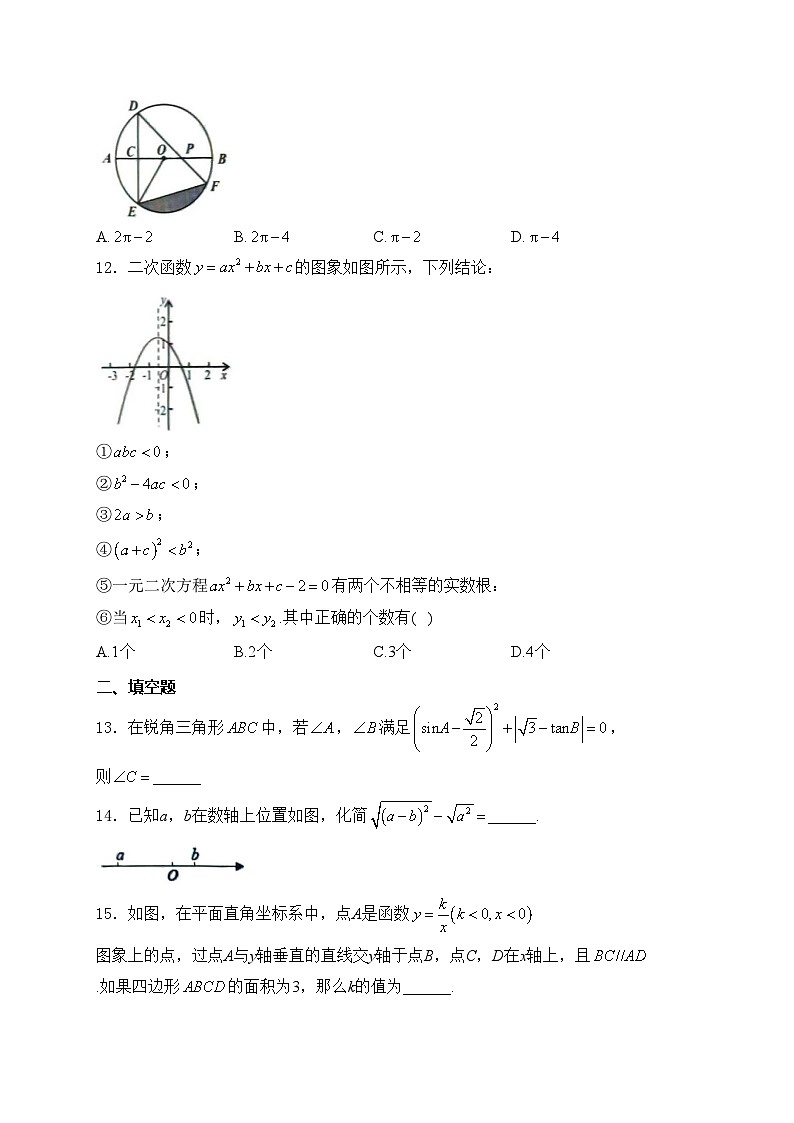 D
A C O P B
F
E
A. 2π−2 B. 2π−4 C. π−2 D. π−4
12．二次函数y=ax²+bx+c的图象如图所示，下列结论：
y
2
1
-3 -2 -1 O 1 2 x
-1
-2
①abc<0；
②b²−4ac<0；
③2a>b；
④(a+c)²<b²；
⑤一元二次方程ax²+bx+c−2=0有两个不相等的实数根：
⑥当x₁<x₂<0时，y₁<y₂.其中正确的个数有( )
A.1个 B.2个 C.3个 D.4个
二、填空题
13．在锐角三角形ABC中，若∠A，∠B满足(sinA−√2/2)²+|√3−tanB|=0，
则∠C=______
14．已知a，b在数轴上位置如图，化简√(a−b)²−√a²=______.
a b
O
15．如图，在平面直角坐标系中，点A是函数y=k/x(k<0,x<0)
图象上的点，过点A与y轴垂直的直线交y轴于点B，点C，D在x轴上，且BC//AD
.如果四边形ABCD的面积为3，那么k的值为______.